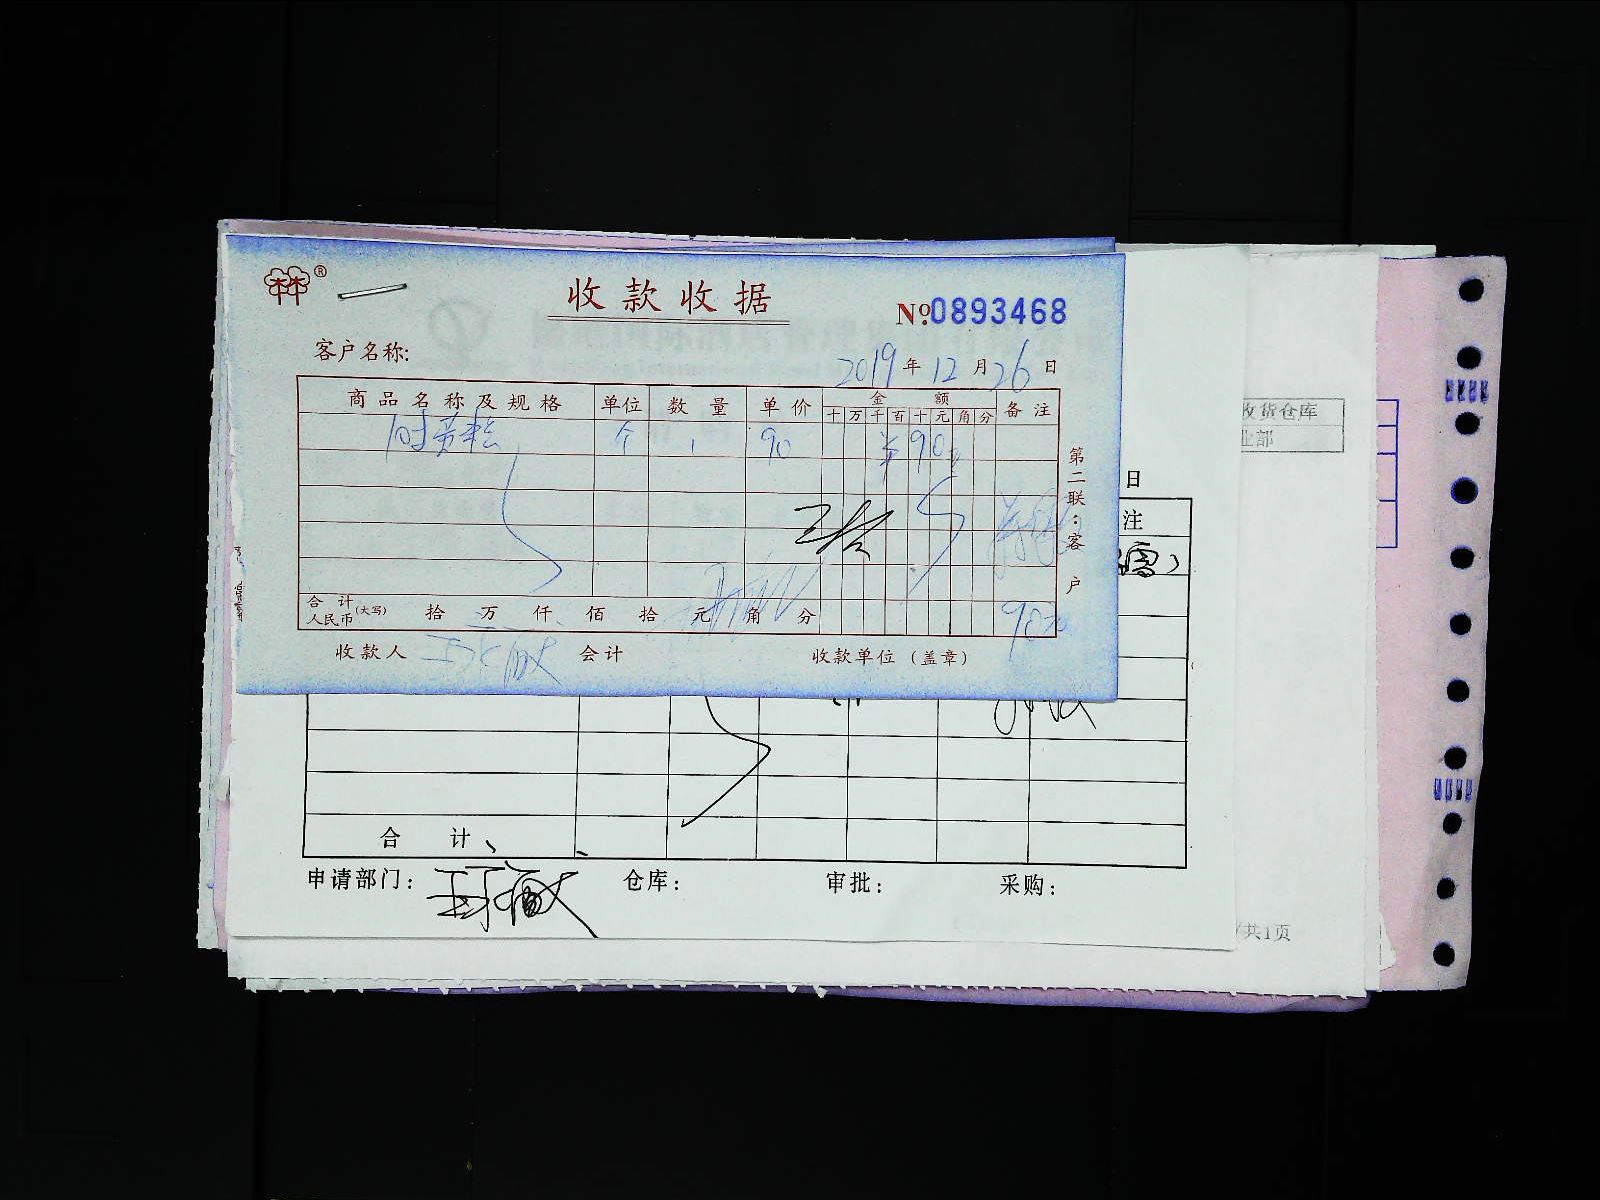 ®
收款收据
№ 0893468
客户名称:
2019年12月26日
商品名称及规格 单位 数量 单价 金额 备注
十 万 千 百 十 元 角 分
个 1 90 ¥ 90
合计
人民币(大写) 拾 万 仟 佰 拾 元 角 分
90元
收款人 会计 收款单位(盖章)
第二联:客户
收货仓库
业部
日
注
合计
申请部门: 仓库: 审批: 采购:
/共1页